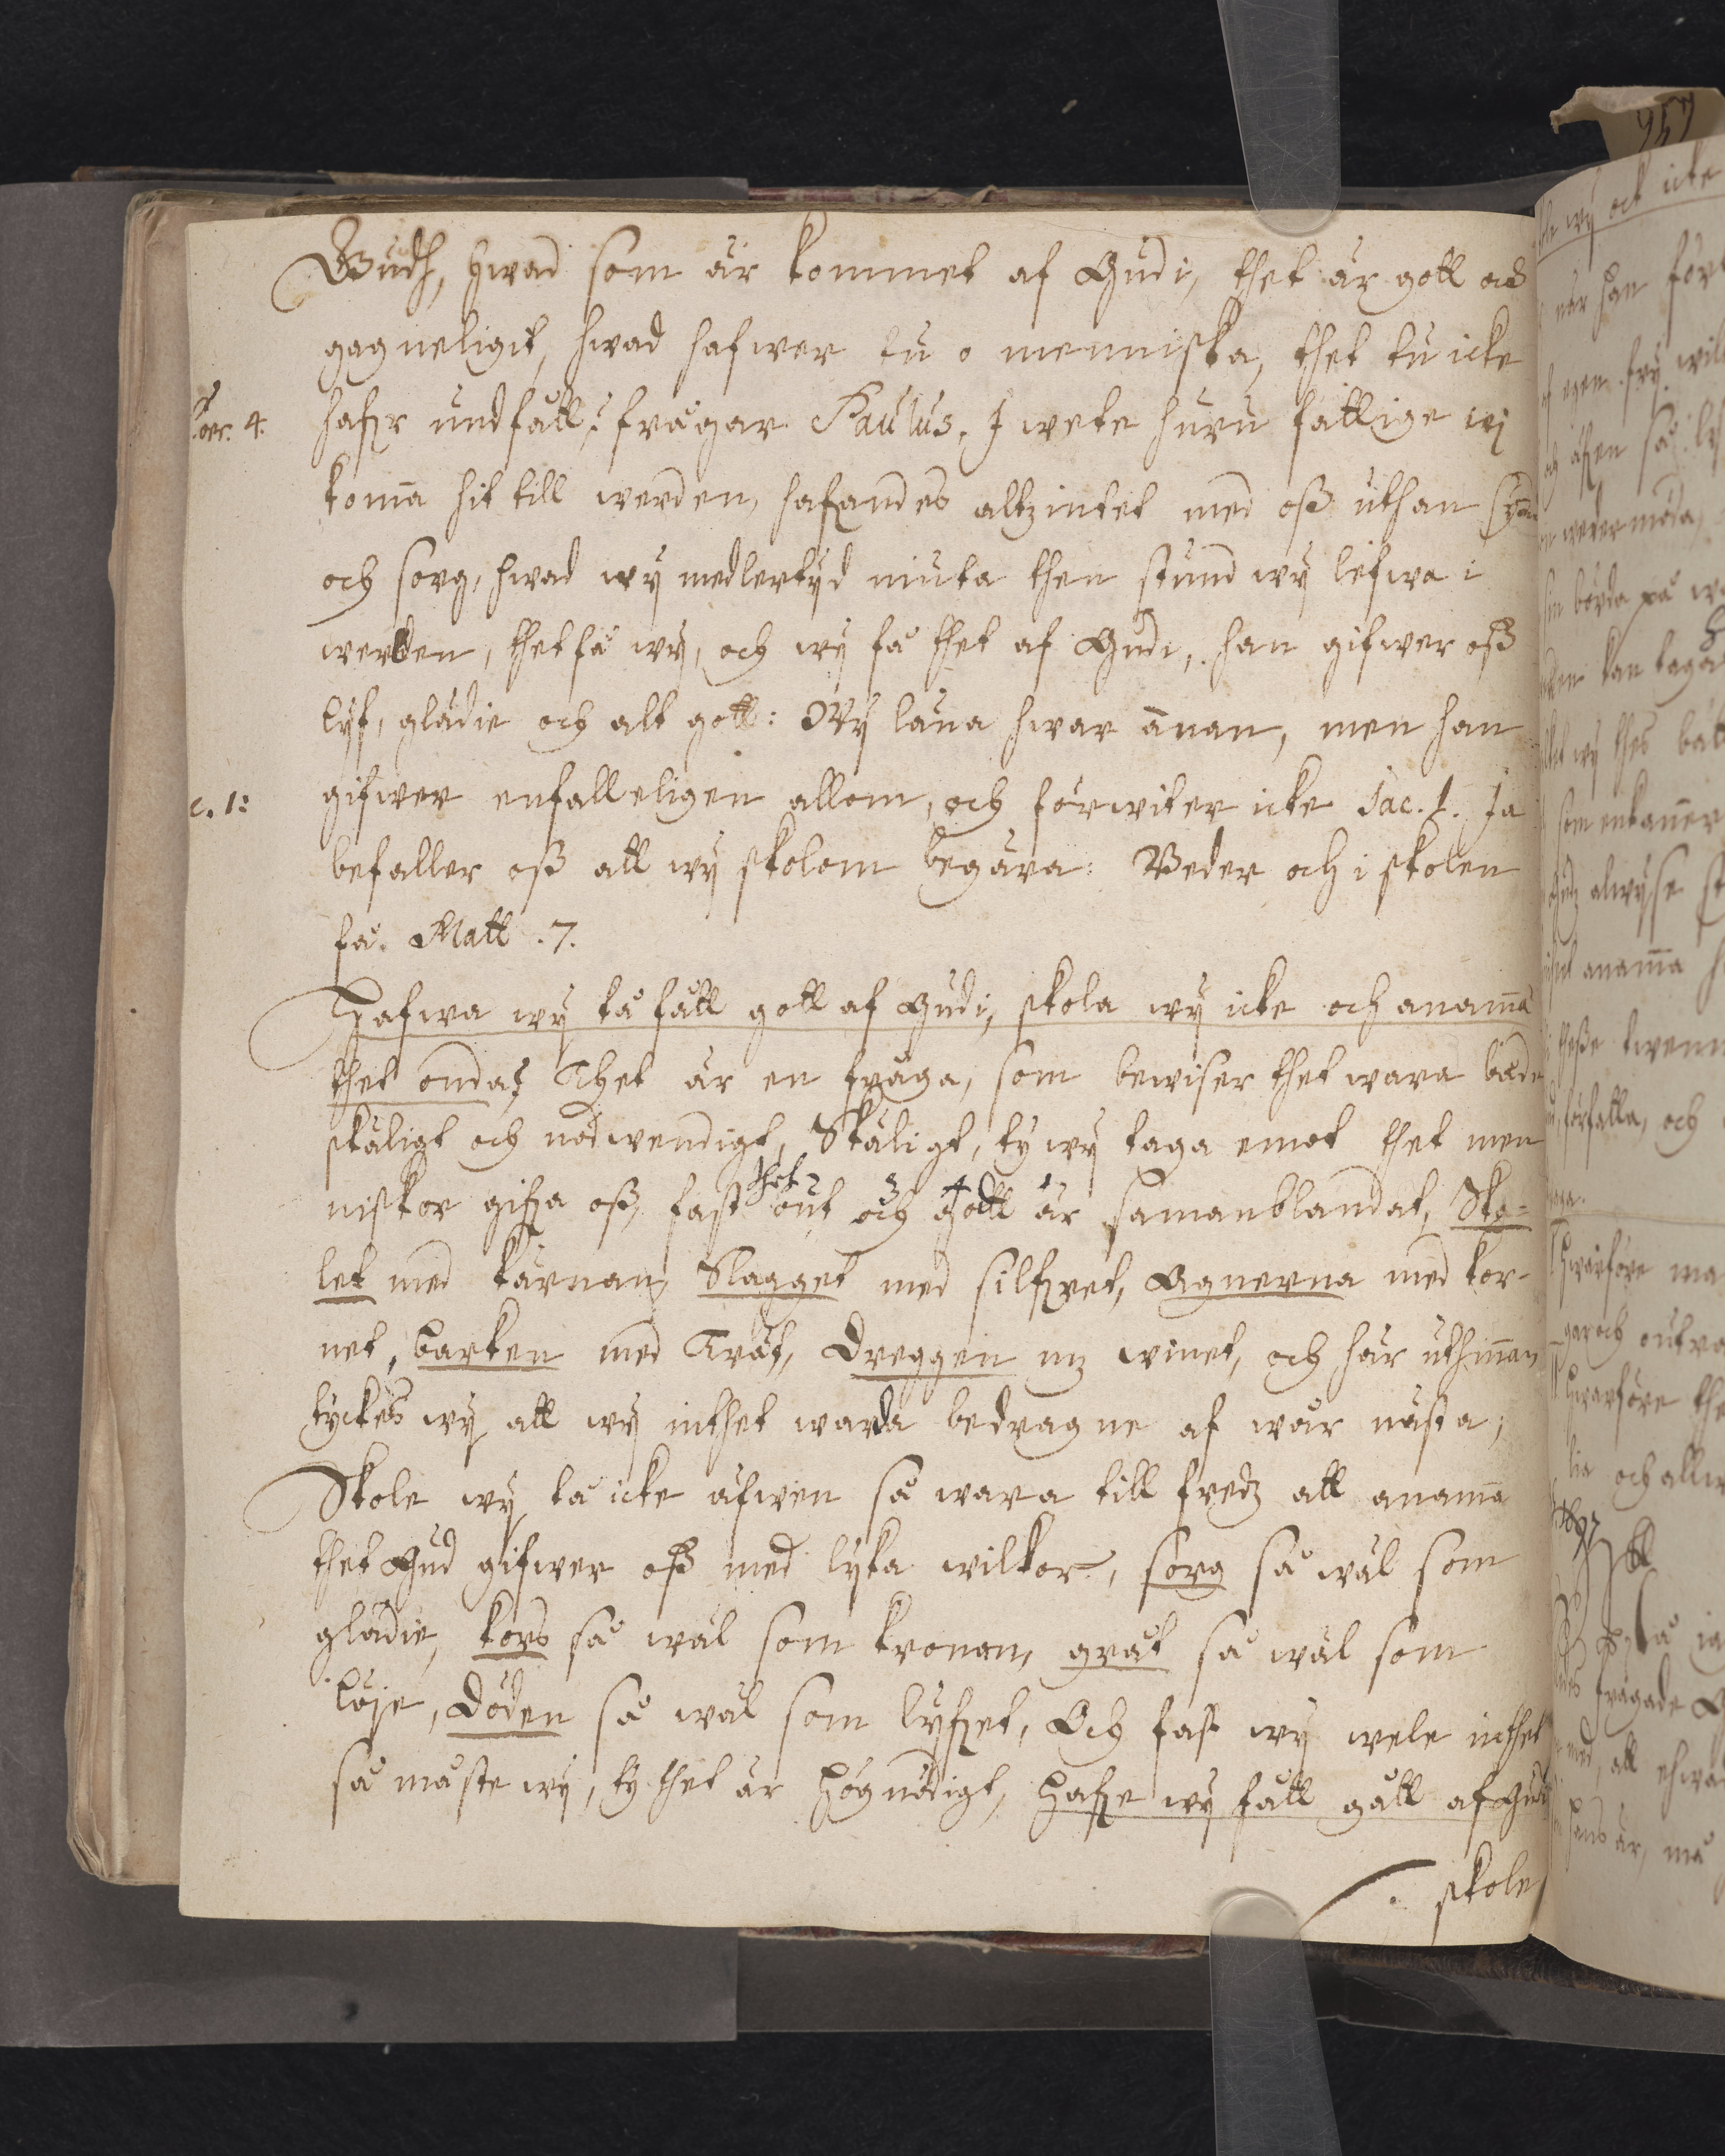 Gudh, hwad som är kommet af Gudi, thet är gott och
gagneligit, hwad hafwer tu o menniska, thet tu icke
Cor. 4. hafr undfått, frågar Paulus. I wete huru fattige wi
koma hit till werden, hafandes altzintet med oß uthan synd
och sorg, hwad wÿ medlertÿd niuta then stund wÿ lefwa i
werlden, thet få wÿ, och wÿ få thet af Gudi, han gifwer oß
lÿf, glädie och alt gott: Wÿ låna hwar annan, men han
c. 1: gifwer enfalleligen allom, och förwiter icke Jac. 1. Ja
befaller oß att wÿ skolom begära: Beder och i skolen
få. Matt. 7.
Hafwa wÿ tå fått gott af Gudi, skola wÿ icke och anama
thet onda? Thet är en fråga, som bewiser thet wara både
skäligt och nödwendigt, Skäligt, ty wÿ taga emot thet men
niskor gifa oß, fast thet ont och gott är samanblandat, Ska-
let med kärnan, Slagget med silfret, Agnerna med kor-
net, barken med Trät, Dreggen mz winet, och här uthinnan
tyckes wÿ att wÿ inthet warda bedragne af wår nästa;
Skole wÿ tå icke äfwen så wara till fredz att anama
thet Gud gifwer oß med lÿka wilkor, sorg så wäl som
glädie, kors så wäl som kronan, gråt så wäl som
löje, döden så wäl som lÿfet, Och fast wÿ wele inthet
så måste wÿ, ty thet är högnödigt, Hafe wÿ fått gått af Gudi
skole